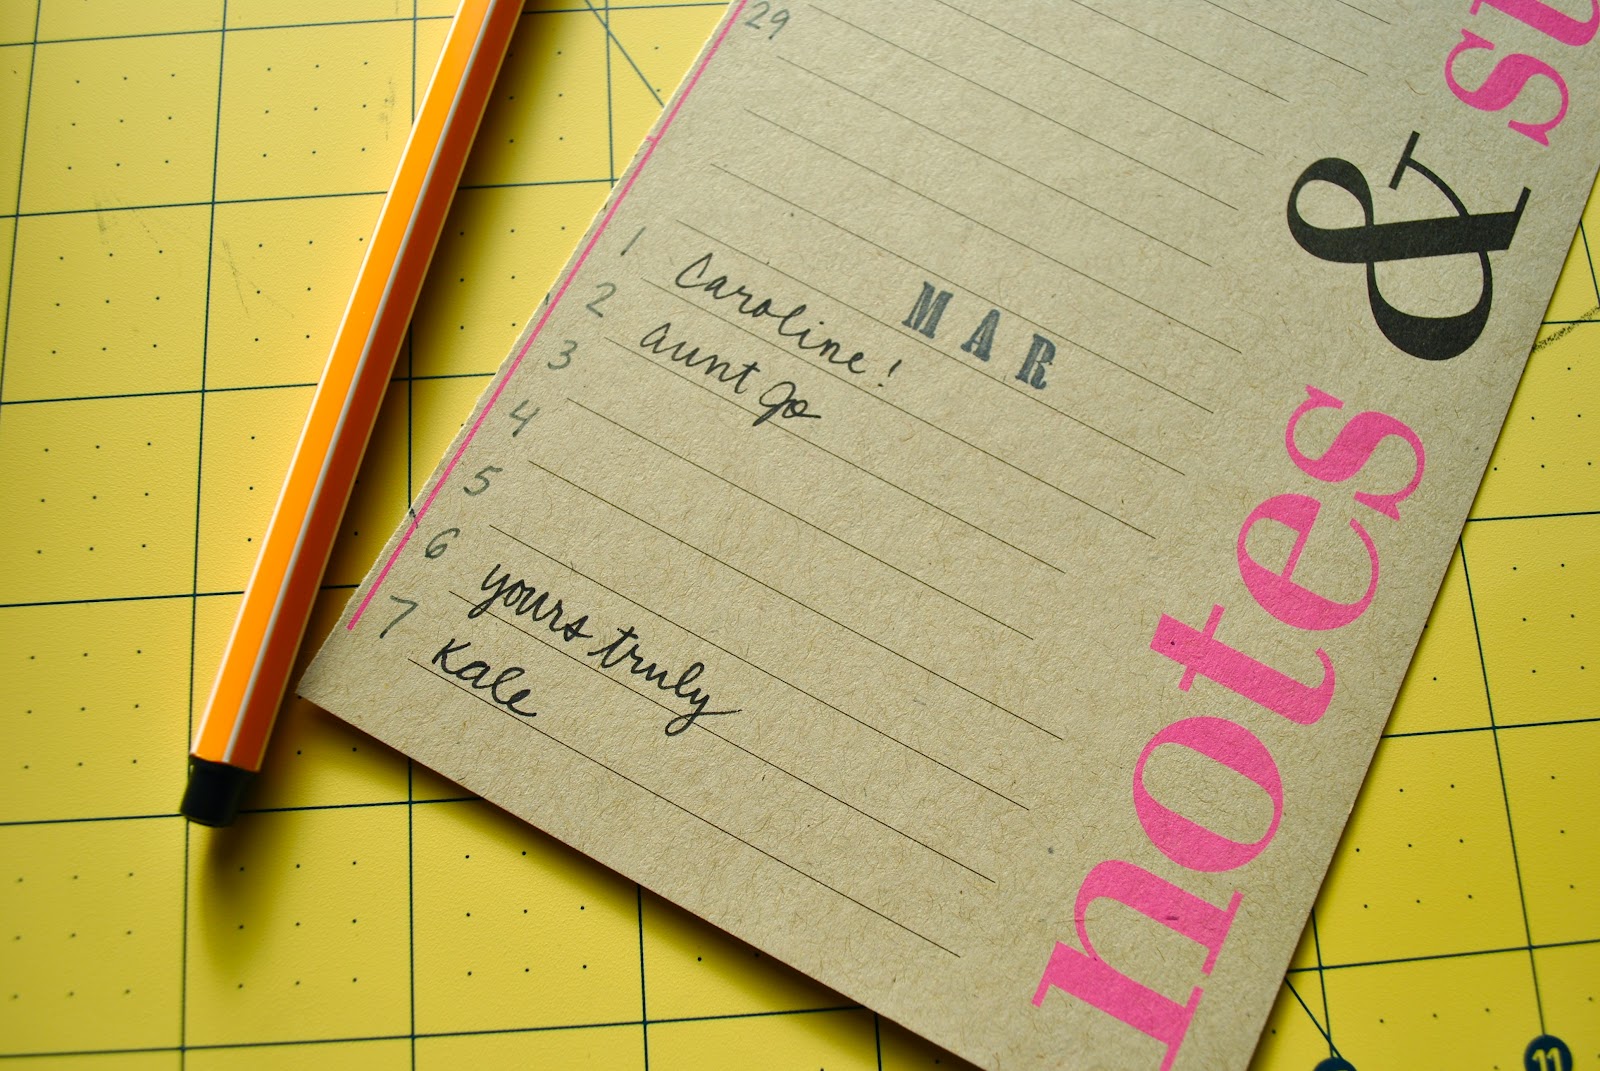 29
MAR
1 Caroline!
2 aunt Jo
3
4
5
6 yours truly
7 Kale
notes & st
11